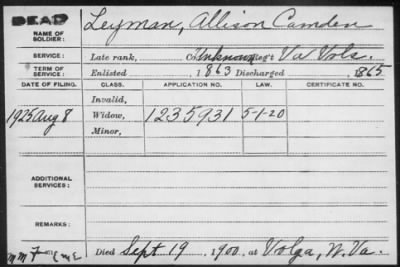 DEAD
NAME OF SOLDIER: Leyman, Allison Camden
SERVICE: Late rank, Co. Unknown Reg't Va Vols.
TERM OF SERVICE: Enlisted 1863 Discharged 1865
DATE OF FILING. CLASS. APPLICATION NO. LAW. CERTIFICATE NO.
Invalid,
1925 Aug 8 Widow, 1235931 5-1-20
Minor,
ADDITIONAL SERVICES:
REMARKS:
Died Sept 19, 1900, at Volga, W. Va.